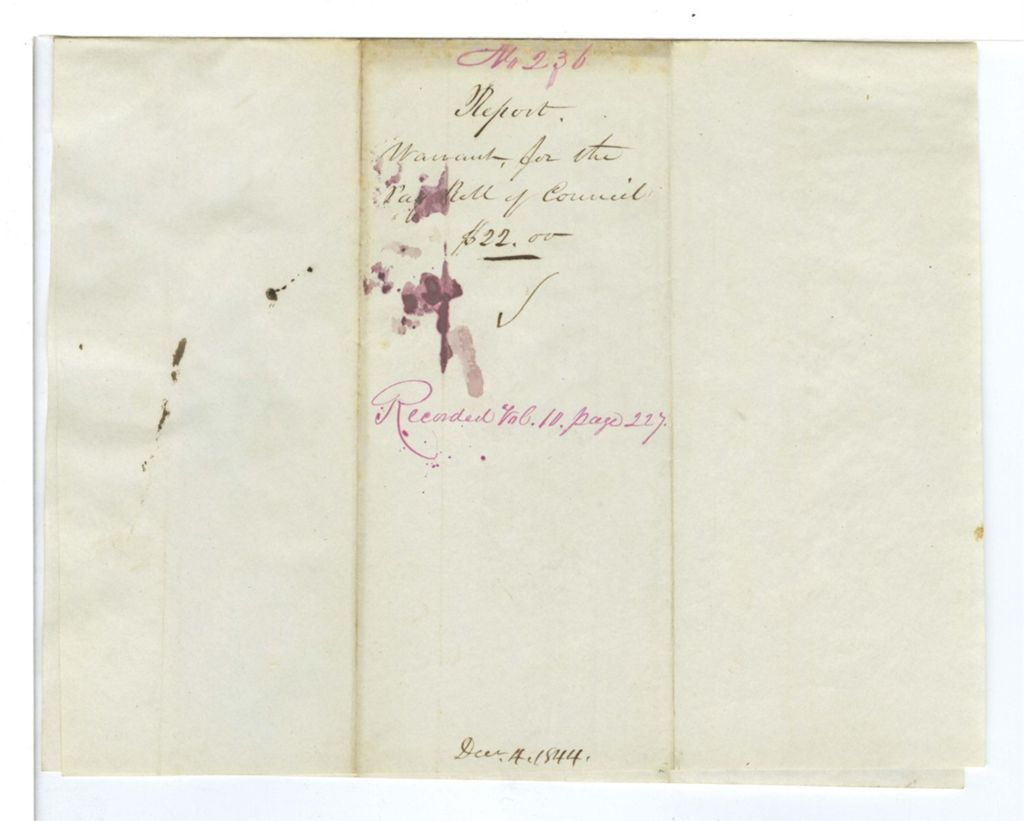 No 236
Report.
Warrant, for the
Pay Roll of Council
$22.00
Recorded Vol. 10. page 227.
Decr. 4. 1844.